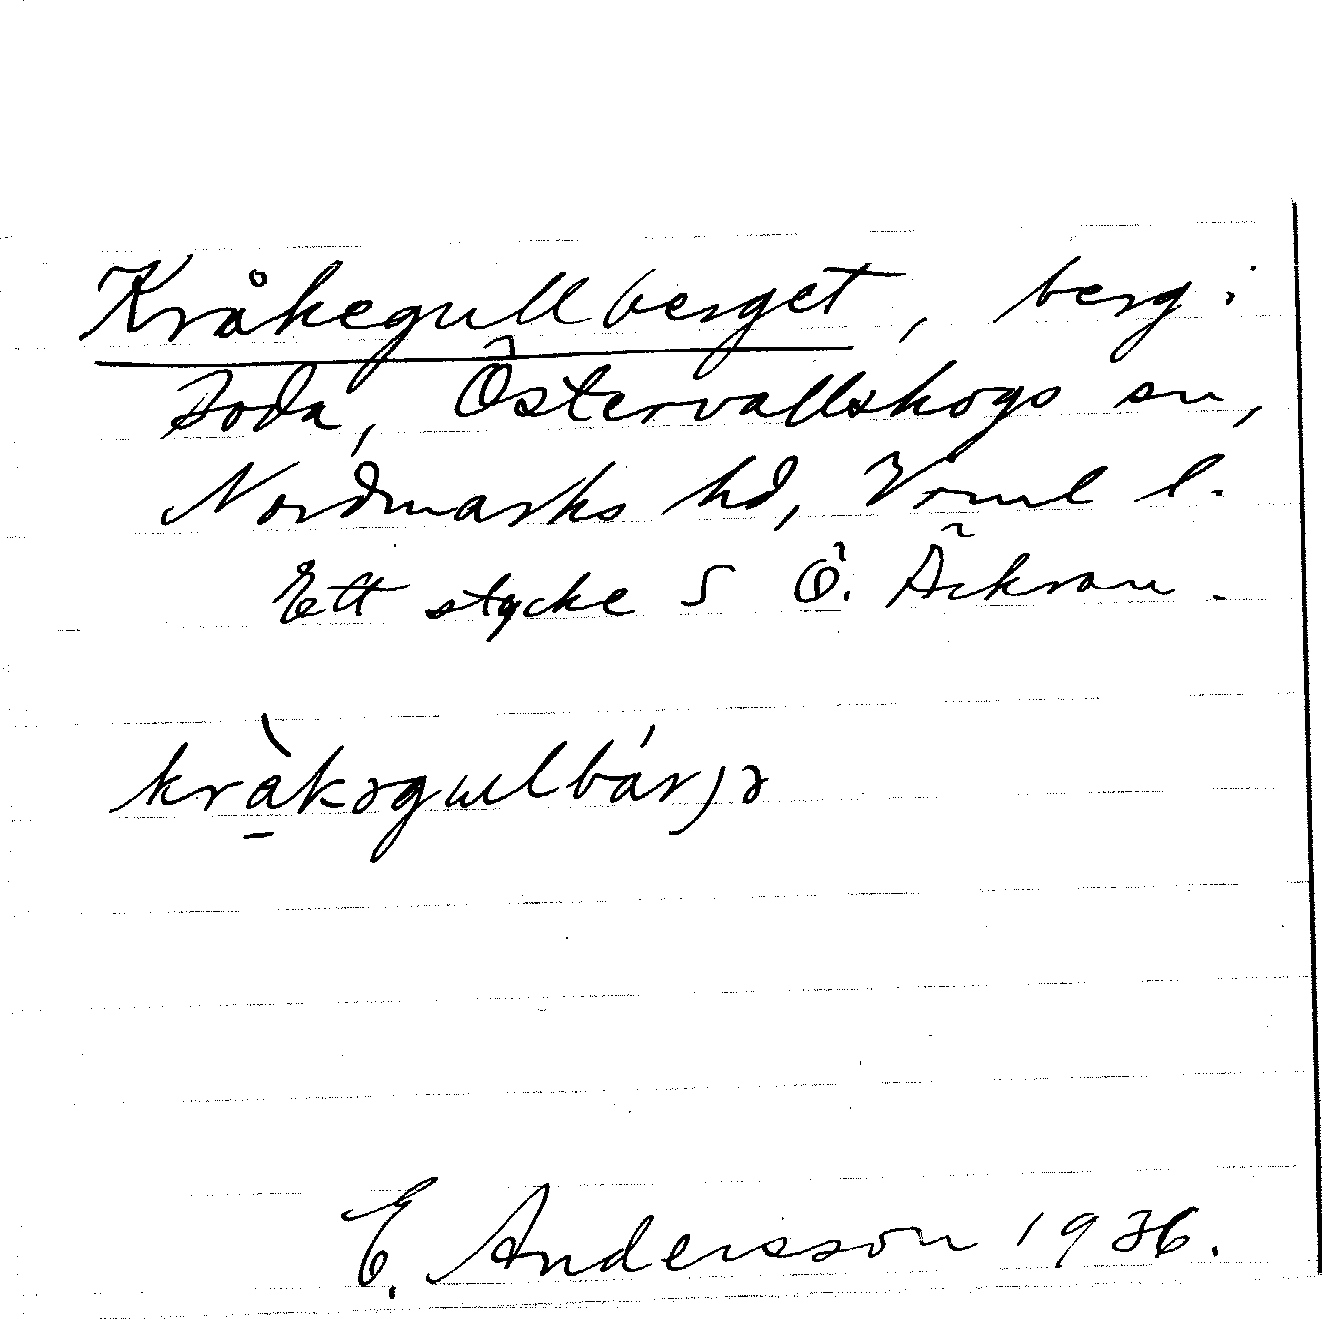 Kråkegullberget, berg i
Soda, Östervallskogs sn,
Nordmarks hd, Värml l.
Ett stycke S Ö. Äckran.
krà̱kəgulbárjə
E. Andersson 1936.